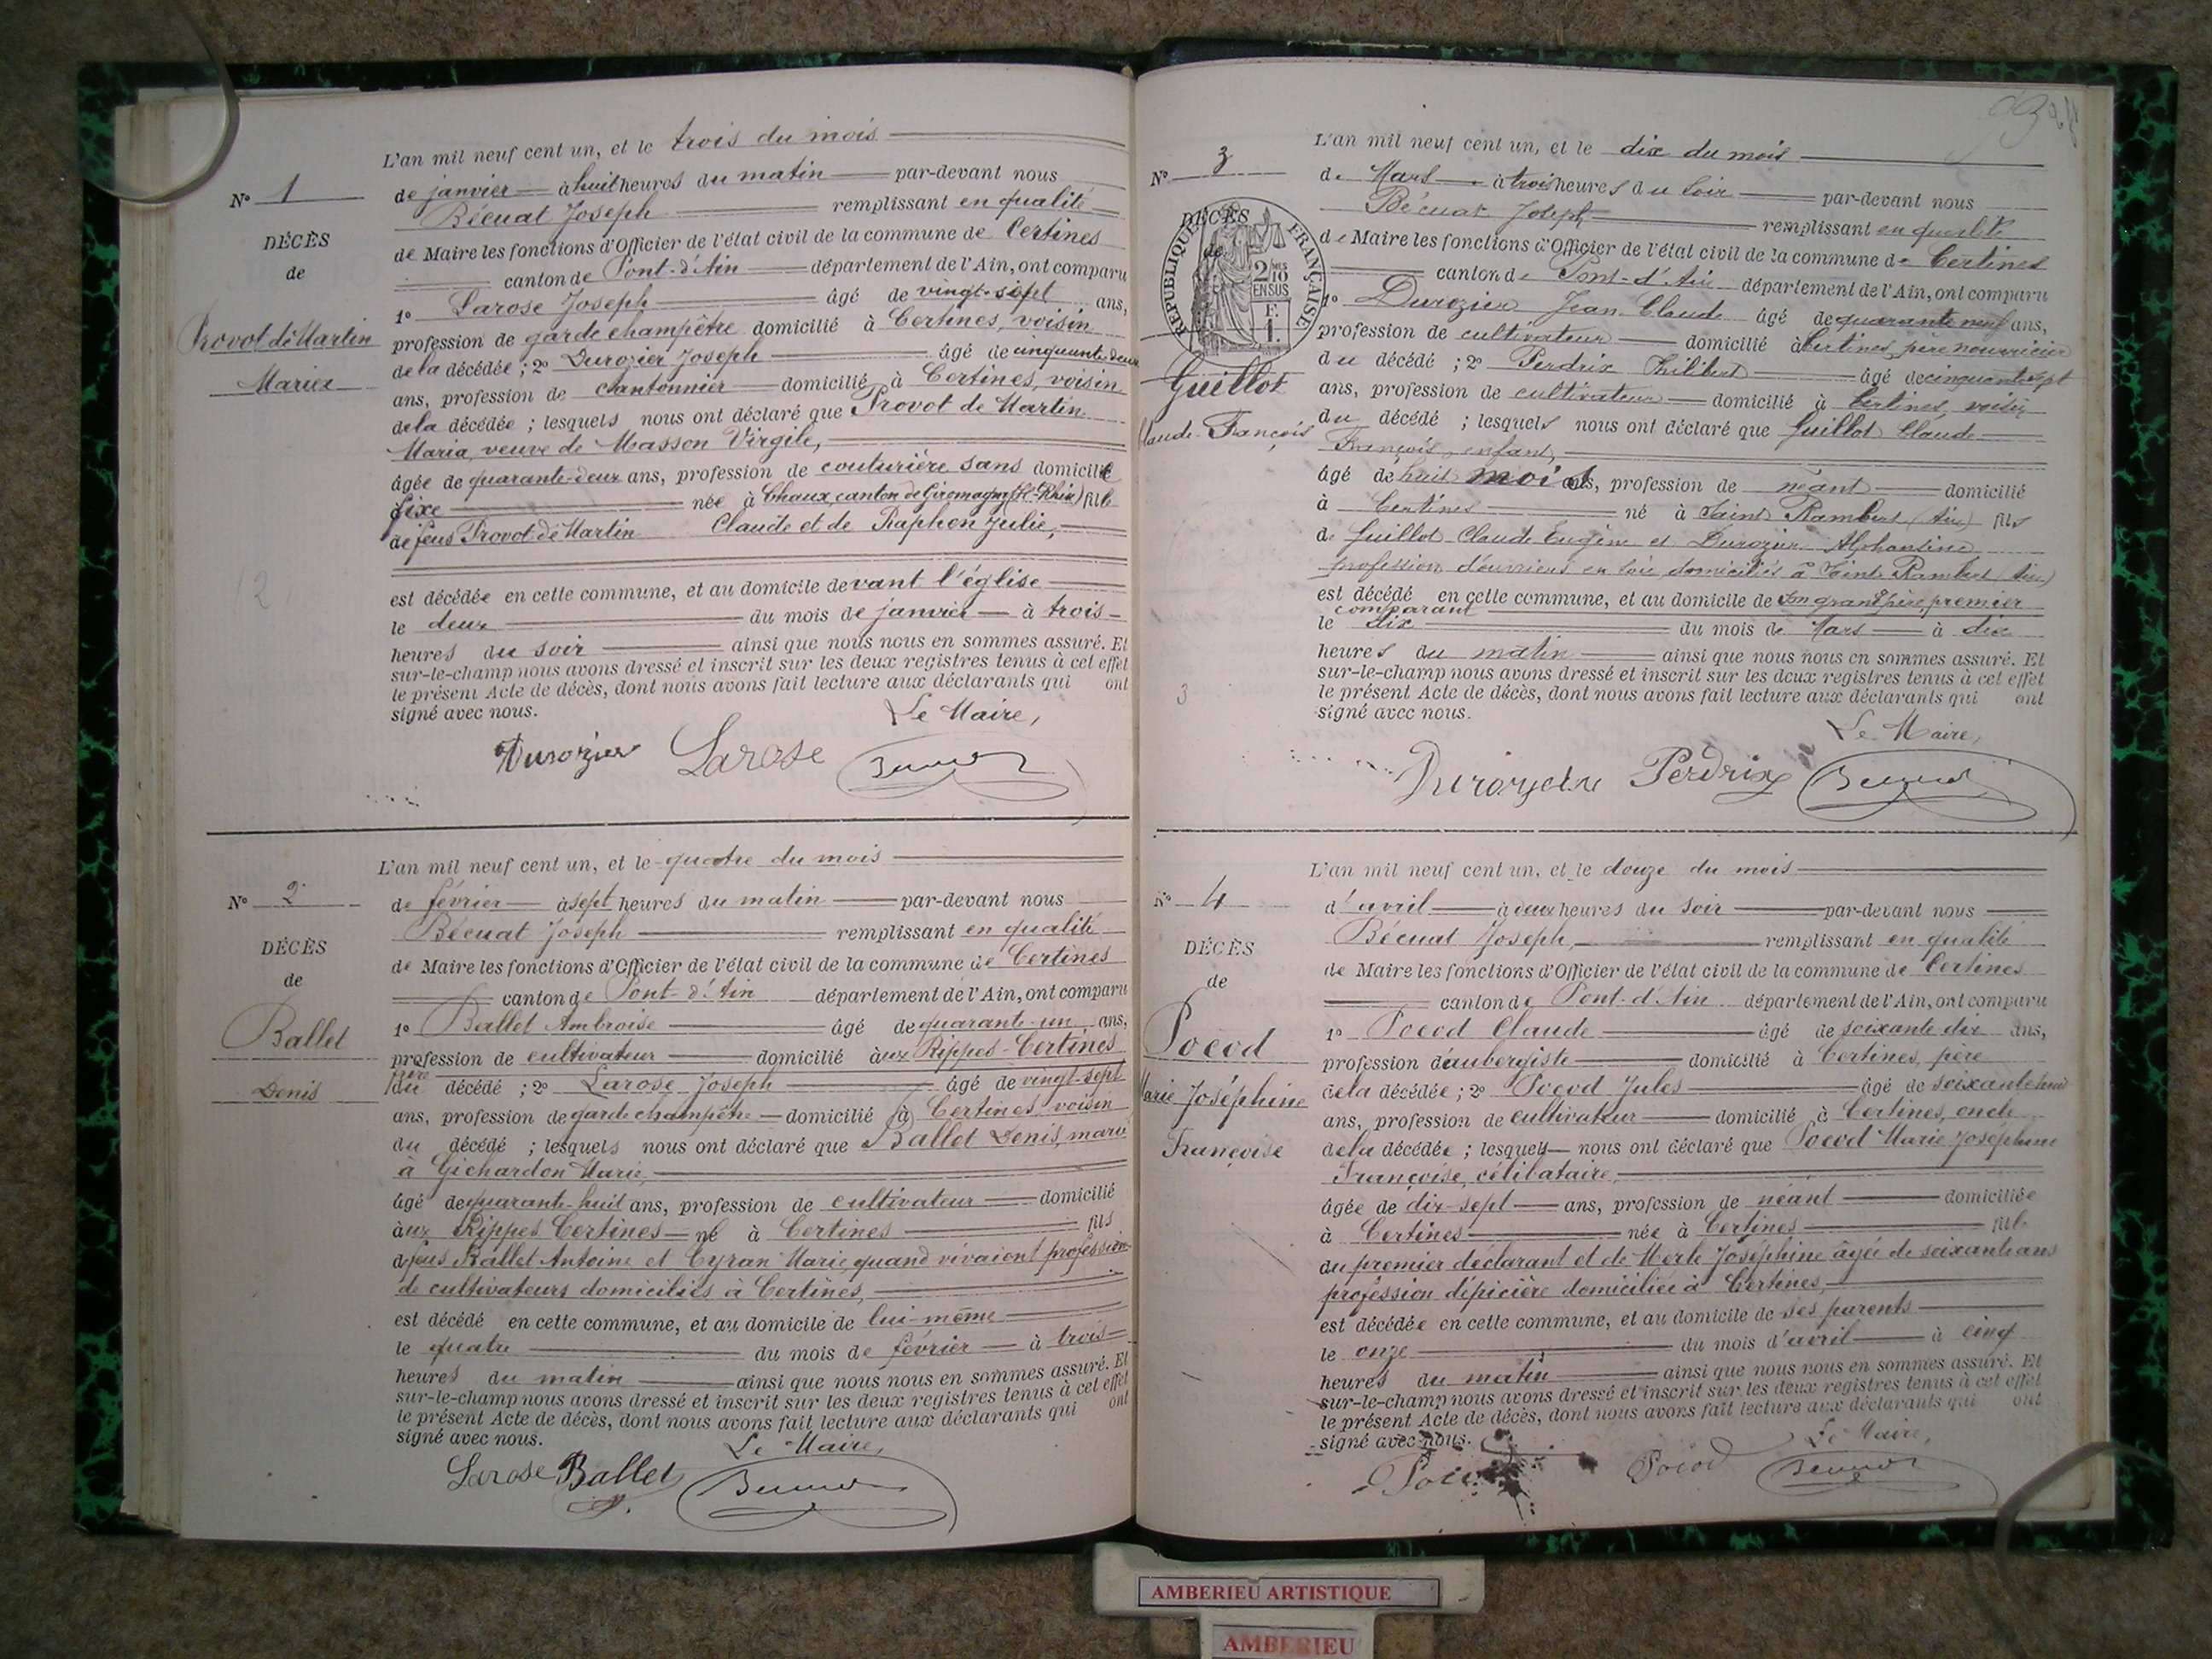 L'an mil neuf cent un, et le trois du mois
N° 1
de janvier à huit heures du matin par-devant nous
Bécuat Joseph remplissant en qualité
DÉCÈS
de Maire les fonctions d'Officier de l'état civil de la commune de Certines
de
canton de Pont-d'Ain département de l'Ain, ont comparu
1° Larose Joseph âgé de vingt-sept ans,
Provot de Martin
profession de garde champêtre domicilié à Certines, voisin
de la décédée ; 2° Durozier Joseph âgé de cinquante deux
Maria
ans, profession de cantonnier domicilié à Certines, voisin
de la décédée ; lesquels nous ont déclaré que Provot de Martin
Maria, veuve de Masson Virgile,
âgée de quarante-deux ans, profession de couturière sans domicile
fixe née à Chaux, canton de Giromagny (Ht-Rhin) fille
de feus Provot de Martin Claude et de Raphon Julie,
est décédée en cette commune, et au domicile devant l'église
le deux du mois de janvier à trois
heures du soir ainsi que nous nous en sommes assuré. Et
sur-le-champ nous avons dressé et inscrit sur les deux registres tenus à cet effet
le présent Acte de décès, dont nous avons fait lecture aux déclarants qui ont
signé avec nous.
Le Maire,
Durozier Larose
L'an mil neuf cent un, et le quatre du mois
N° 2
de février à sept heures du matin par-devant nous
Bécuat Joseph remplissant en qualité
DÉCÈS
de Maire les fonctions d'Officier de l'état civil de la commune de Certines
de
canton de Pont-d'Ain département de l'Ain, ont comparu
Ballet
1° Ballet Ambroise âgé de quarante-un ans,
profession de cultivateur domicilié aux Rippes-Certines
Denis
frère du décédé ; 2° Larose Joseph âgé de vingt-sept
ans, profession de garde champêtre domicilié à Certines voisin
du décédé ; lesquels nous ont déclaré que Ballet Denis, marié
à Gichardon Marie,
âgé de quarante-huit ans, profession de cultivateur domicilié
aux Rippes Certines né à Certines fils
de feus Ballet Antoine et Cyran Marie, quand vivaient profession
de cultivateurs domiciliés à Certines,
est décédé en cette commune, et au domicile de lui-même
le quatre du mois de février à trois
heures du matin ainsi que nous nous en sommes assuré. Et
sur-le-champ nous avons dressé et inscrit sur les deux registres tenus à cet effet
le présent Acte de décès, dont nous avons fait lecture aux déclarants qui ont
signé avec nous.
Le Maire,
Larose Ballet
L'an mil neuf cent un, et le dix du mois
N° 3
de Mars à trois heures du soir par-devant nous
Bécuat Joseph remplissant en qualité
DÉCÈS
de
RÉPUBLIQUE FRANÇAISE
2 10 EN SUS
F. 1.
de Maire les fonctions d'Officier de l'état civil de la commune de Certines
canton de Pont-d'Ain département de l'Ain, ont comparu
1° Durozier Jean Claude âgé de quarante neuf ans,
profession de cultivateur domicilié à Certines, père nourricier
du décédé ; 2° Perdrix Philibert âgé de cinquante sept
Guillot
ans, profession de cultivateur domicilié à Certines, voisin
Claude-François
du décédé ; lesquels nous ont déclaré que Guillot Claude
François, enfant,
âgé de huit mois ans, profession de néant domicilié
à Certines né à Saint Rambert (Ain) fils
de Guillot Claude Eugène et Durozier Alphonsine
profession d'ouvriers en soie domiciliés à Saint Rambert (Ain)
est décédé en cette commune, et au domicile de son grand père, premier
comparant
le dix du mois de Mars à dix
heures du matin ainsi que nous nous en sommes assuré. Et
sur-le-champ nous avons dressé et inscrit sur les deux registres tenus à cet effet
3
le présent Acte de décès, dont nous avons fait lecture aux déclarants qui ont
signé avec nous.
Le Maire,
Perdrix
L'an mil neuf cent un, et le douze du mois
N° 4
d'avril à deux heures du soir par-devant nous
Bécuat Joseph, remplissant en qualité
DÉCÈS
de Maire les fonctions d'Officier de l'état civil de la commune de Certines
de
canton de Pont-d'Ain département de l'Ain, ont comparu
Pocod
1° Pocod Claude âgé de soixante dix ans,
profession d'aubergiste domicilié à Certines, père
Marie Joséphine
de la décédée ; 2° Pocod Jules âgé de soixante
ans, profession de cultivateur domicilié à Certines, oncle
Françoise
de la décédée ; lesquels nous ont déclaré que Pocod Marie Joséphine
Françoise, célibataire,
âgée de dix-sept ans, profession de néant domiciliée
à Certines née à Certines fille
du premier déclarant et de Merle Joséphine âgée de soixante ans
profession d'épicière domiciliée à Certines,
est décédée en cette commune, et au domicile de ses parents
le onze du mois d'avril à cinq
heures du matin ainsi que nous nous en sommes assuré. Et
sur-le-champ nous avons dressé et inscrit sur les deux registres tenus à cet effet
le présent Acte de décès, dont nous avons fait lecture aux déclarants qui ont
signé avec nous.
Le Maire,
Pocod
AMBERIEU ARTISTIQUE
AMBERIEU